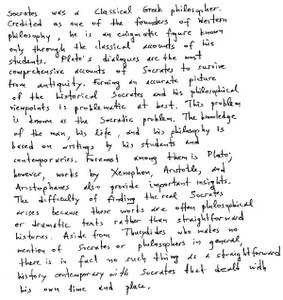 Socrates was a Classical Greek philosopher.
Credited as one of the founders of Western
philosophy, he is an enigmatic figure known
only through the classical accounts of his
students. Plato's dialogues are the most
comprehensive accounts of Socrates to survive
from antiquity. Forming an accurate picture
of the historical Socrates and his philosophical
viewpoints is problematic at best. This problem
is known as the Socratic problem. The knowledge
of the man, his life, and his philosophy is
based on writings by his students and
contemporaries. Foremost among them is Plato;
however, works by Xenophon, Aristotle, and
Aristophanes also provide important insights.
The difficulty of finding the real Socrates
arises because these works are often philosophical
or dramatic texts rather than straightforward
histories. Aside from Thucydides who makes no
mention of Socrates or philosophers in general,
there is in fact no such thing as a straightforward
history contemporary with Socrates that dealt with
his own time and place.